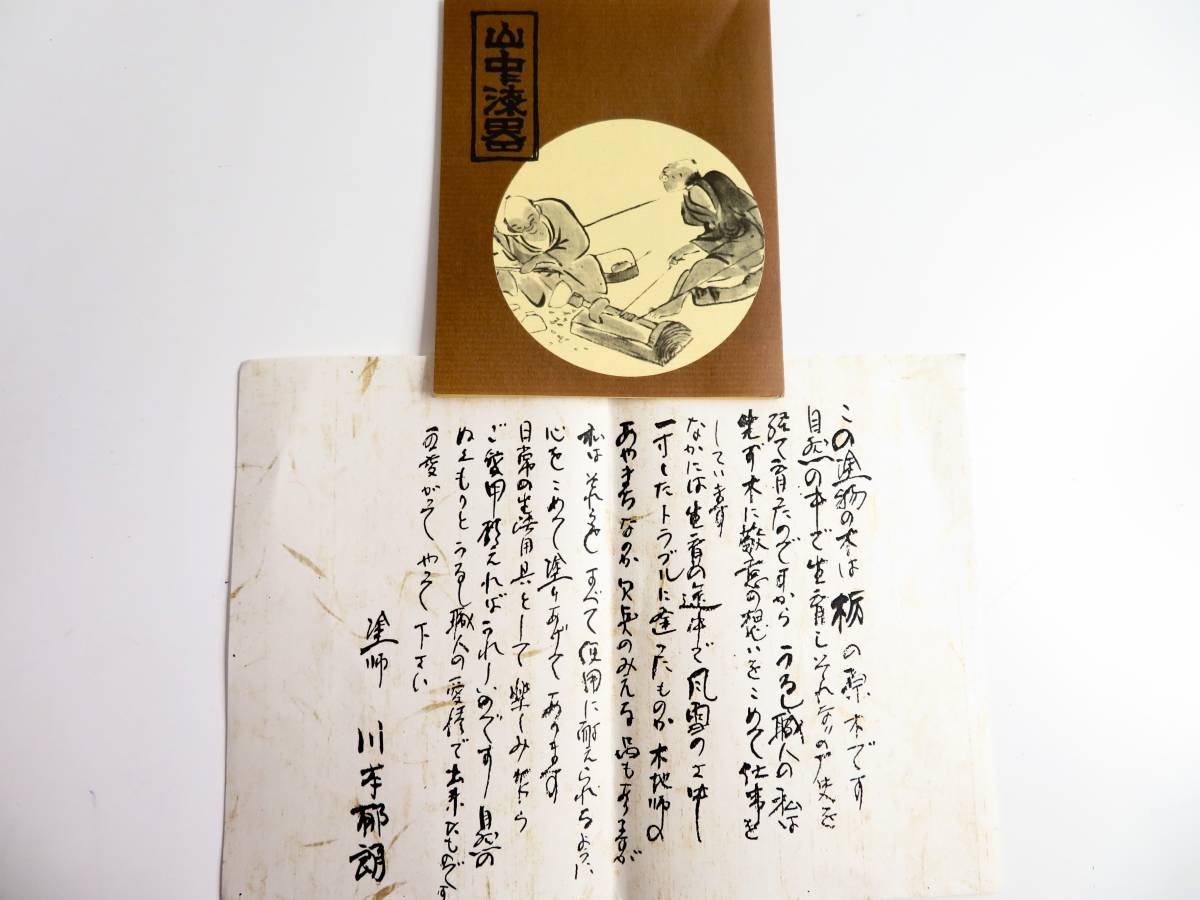 山中漆器
この塗物の木は栃の原木です
自然の中で生育しそれなりの歴史を
経て育ったのですから うるし職人の私は
先ず木に敬意の想いをこめて仕事を
しています
なかには生育の途中で風雪の
一寸したトラブルに逢ったものか 木地師の
あやまちなのか 欠点のみえる品もありますが
私はそれらを すべて使用に耐えられるように
心をこめて塗りあげて あります
日常の生活用具として 楽しみながら
ご愛用願えればうれしいのです 自然の
ぬくもりと うるし職人の愛情で出来たものです
可愛がって やって 下さい
塗師 川本郁朗